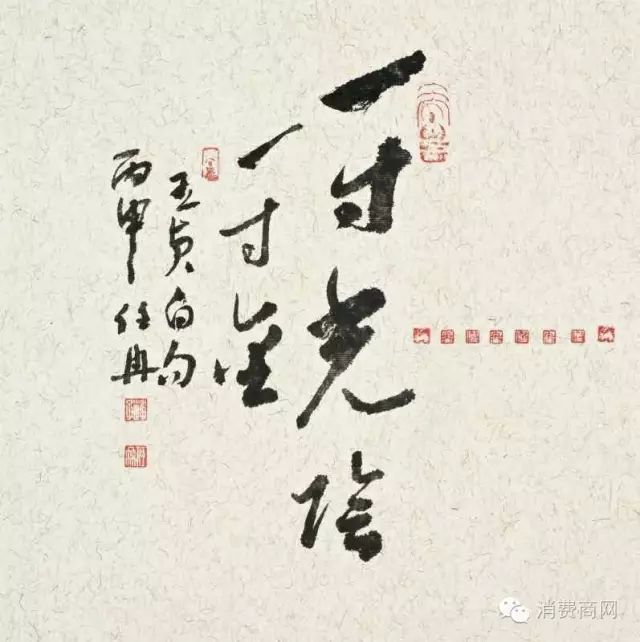 一寸光陰
一寸金
王贞白句
丙申 任冉
消费商网